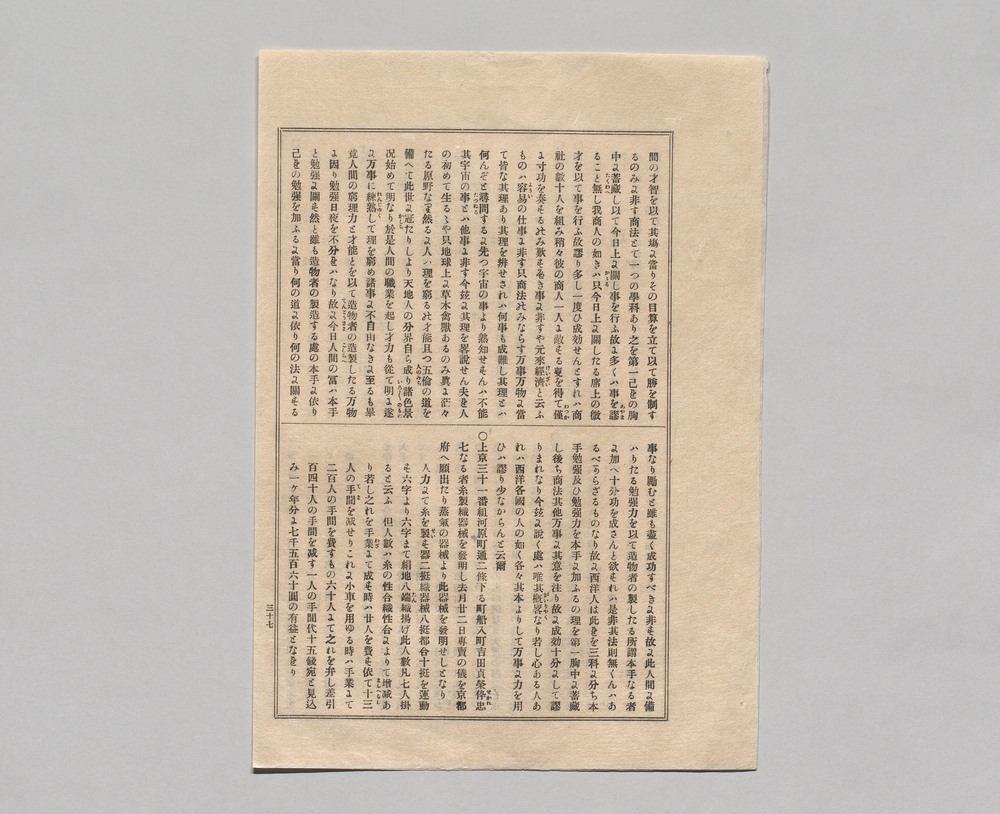 間の才智を以て其塲ょ當りその目算を立て以て勝を制す
るのみょ非す商法とて一つの學科あり之を第一己をの胸
中ょ蓄藏し以て今日上ょ關し事を行ふ故ょ多くハ事を謬
ること無し我商人の如きハ只今日上ょ關したる席上の微
才を以て事を行ふ故謬り多し一度ひ成効せんとすれハ商
社の數十人を組み稍々彼の商人一人ょ敵をる叓を得て僅
ょ寸功を奏をるのみ歎をるき事ょ非すや元來經濟と云ふ
ものハ容易の仕事ょ非す只商法のみならす万事万物ょ當
て皆な其理あり其理を辨せされハ何事も成難し其理とハ
何んぞと尋問するょ先つ宇宙の事より熟知せもんハ不能
其宇宙の事とハ他事ょ非す今玆ょ其理を畧說せん夫を人
の初めて生るゝや只地球上ょ草木禽獸あるのみ眞ょ茫々
たる原野なり然るょ人ハ理を窮るの才能且つ五倫の道を
備へて此世ょ冠たりしより天地人の分界自ら成り諸色景
况始めて明なり於是人間の職業を起し才力も從て明ょ遂
ょ万事に練熟して理を窮め諸事ょ不自由なきょ至るも畢
竟人間の窮理力と才能とを以て造物者の造製したる万物
ょ因り勉强日夜を不分をハなり故ょ今日人間の冨ハ本手
と勉强ょ關を然と雖も造物者の製造する處の本手ょ依り
己をの勉强を加ふるょ當り何の道ょ依り何の法ょ關をる
事なり勵むと雖も盡く成功すべきょ非も故ょ此人間ょ備
ハりたる勉强力を以て造物者の製したる所謂本手なる者
ょ加へ十分功を成さんと欲をれハ是非其法則無くんハあ
るべからざるものなり故ょ西洋人は此をを三科ょ分ち本
手勉强及ひ勉强力を本手ょ加ふるの理を第一胸中ょ蓄藏
し後ち商法其他万事ょ其意を注り故ょ成効十分ょして謬
りまれなり今玆ょ說く處ハ唯其概畧なり若し心ある人あ
れハ西洋各國の人の如く各々其本よりして万事ょ力を用
ひハ謬り少なからんと云爾
〇上京三十一番組河原町通二條下る町船入町吉田貞榮倅忠
七なる者糸製織器械を發明し去月廿二日專賣の儀を京都
府へ願出たり蒸氣の器械より此器械を發明せしとなり
人力ょて糸を製を器二挺織器械八挺都合十挺を運動
も六字より六字まて絹地八端織揚げ此人數凡七人掛
ると云ふ 但人數ハ糸の性合織性合ょよりて增减あ
り若し之れを手業ょて成を時ハ廿人を費も依て十三
人の手間を减せりこれょ小車を用ゆる時ハ手業ょて
二百人の手間を費すもの六十人ょて之れを弁し差引
百四十人の手間を减す一人の手間代十五錢宛と見込
み一ヶ年分ょ七千五百六十圓の有益となをり
三十七